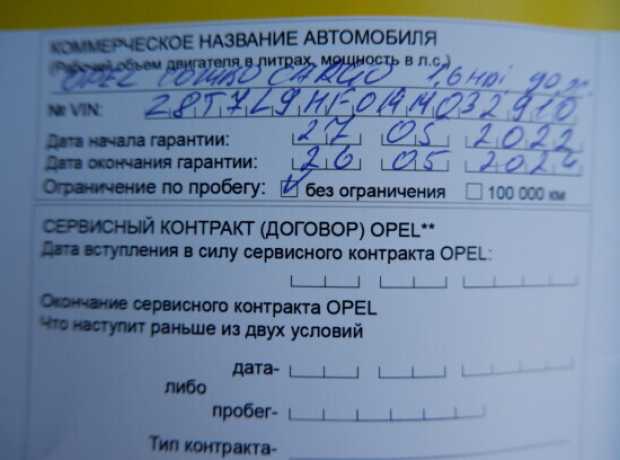 КОММЕРЧЕСКОЕ НАЗВАНИЕ АВТОМОБИЛЯ
(Рабочий объем двигателя в литрах, мощность в л.с.)
OPEL COMBO CARGO 1,6 HDi 90 л.
№ VIN:
Дата начала гарантии: 27 05 2022
Дата окончания гарантии: 26 05 2024
Ограничение по пробегу: ✓ без ограничения 100 000 км
СЕРВИСНЫЙ КОНТРАКТ (ДОГОВОР) OPEL**
Дата вступления в силу сервисного контракта OPEL:
Окончание сервисного контракта OPEL
Что наступит раньше из двух условий
дата-
либо
пробег-
Тип контракта-